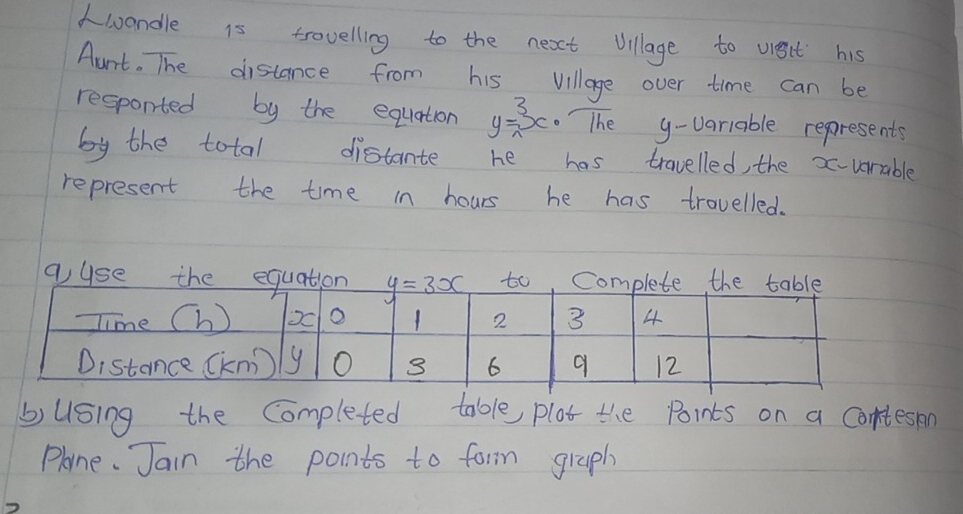 Lwandle is travelling to the next Village to visit his
Aunt. The distance from his Village over time can be
responted by the equation y=3x. The y-variable represents
by the total distante he has travelled, the x-variable
represent the time in hours he has travelled.
a) Use the equation y=3x to Complete the table
Time (h) x 0 1 2 3 4
Distance (km) y 0 3 6 9 12
b) Using the Completed table, plot the Points on a Cartesian
Plane. Join the points to form graph